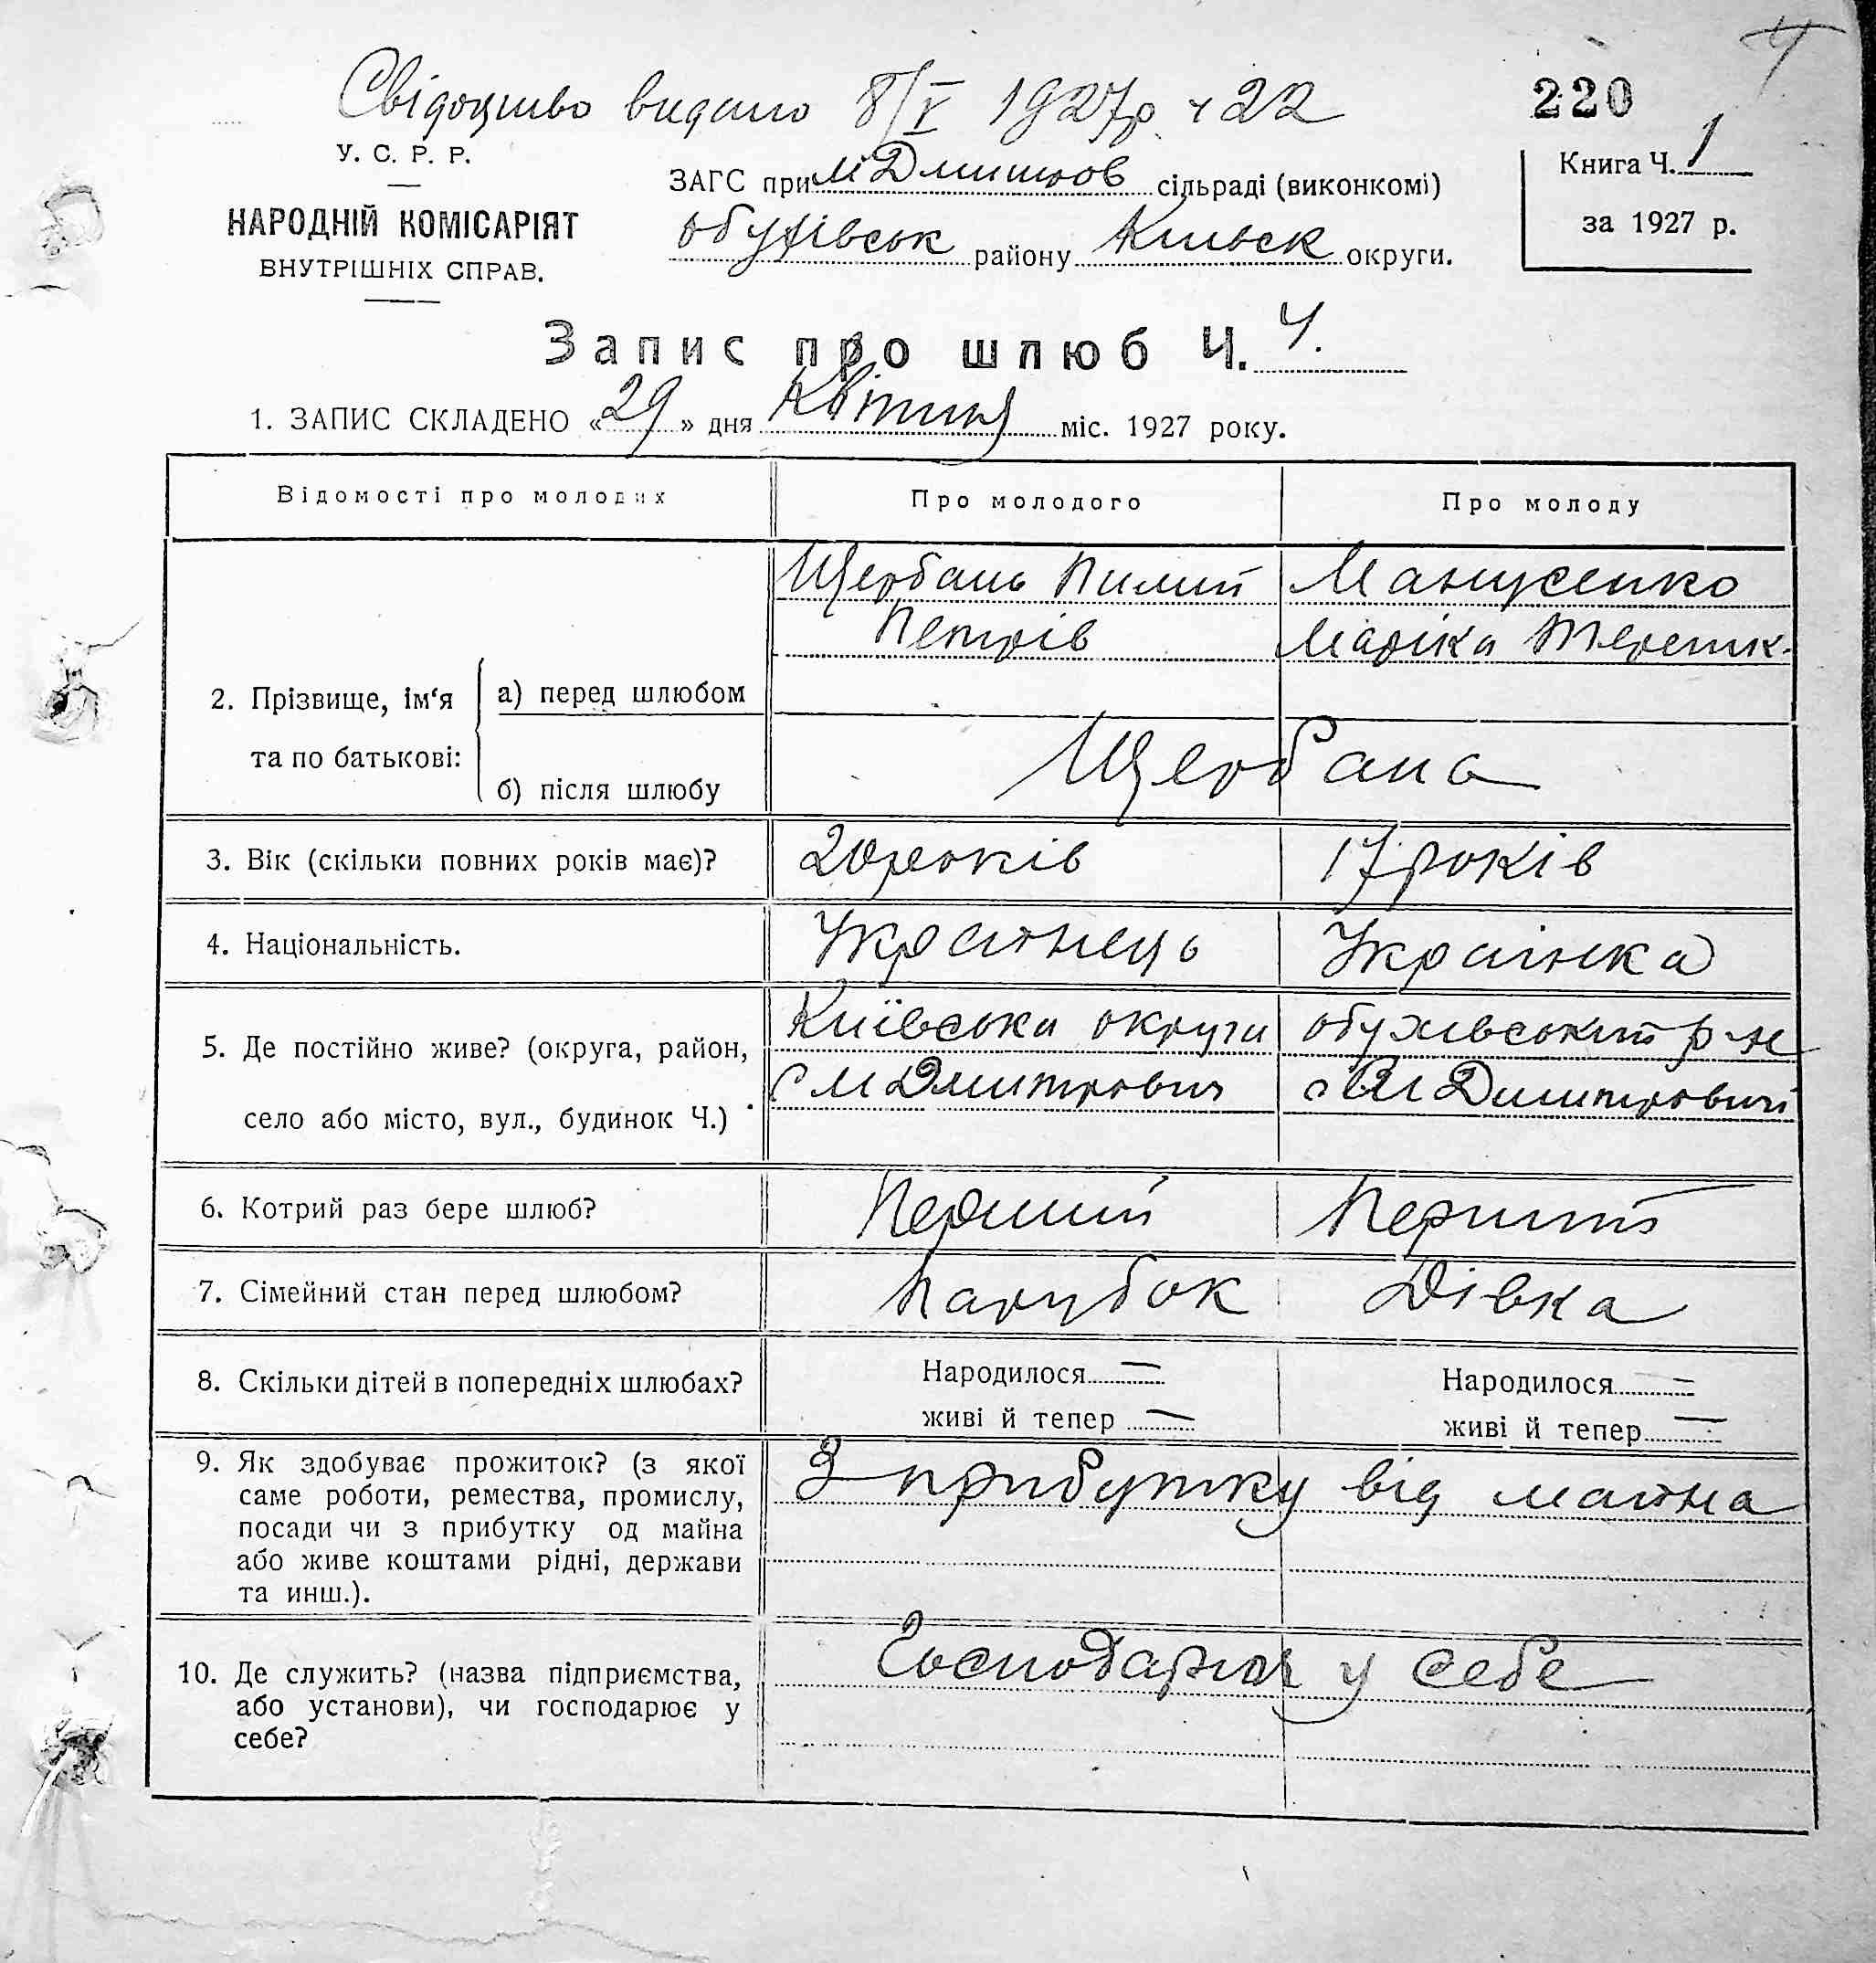 4
Свідоцтво видано 8/V 1927р ч 22
220
У. С. Р. Р.
НАРОДНІЙ КОМІСАРІЯТ
ВНУТРІШНІХ СПРАВ.
ЗАГС при М Дмитров сільраді (виконкомі)
Обухівськ району Київськ округи.
Книга Ч. 1
за 1927 р.
Запис про шлюб Ч. 4.
1. ЗАПИС СКЛАДЕНО «29» дня Квітня міс. 1927 року.
Відомості про молодих Про молодого Про молоду
2. Прізвище, ім'я та по батькові:
а) перед шлюбом
Щербань Пилип
Петрів
Манусенко
Маріка Терешк.
б) після шлюбу
Щербань
3. Вік (скільки повних років має)? 20 років 17 років
4. Національність. Українець Українка
5. Де постійно живе? (округа, район,
село або місто, вул., будинок Ч.)
Київська округи обухівський р-н
с М Дмитрович с М Дмитрович
6. Котрий раз бере шлюб? Перший Перший
7. Сімейний стан перед шлюбом? Парубок Дівка
8. Скільки дітей в попередніх шлюбах? Народилося — Народилося —
живі й тепер — живі й тепер —
9. Як здобуває прожиток? (з якої
саме роботи, ремества, промислу,
посади чи з прибутку од майна
або живе коштами рідні, держави
та инш.).
З прибутку від майна
10. Де служить? (назва підприємства,
або установи), чи господарює у
себе?
у себе